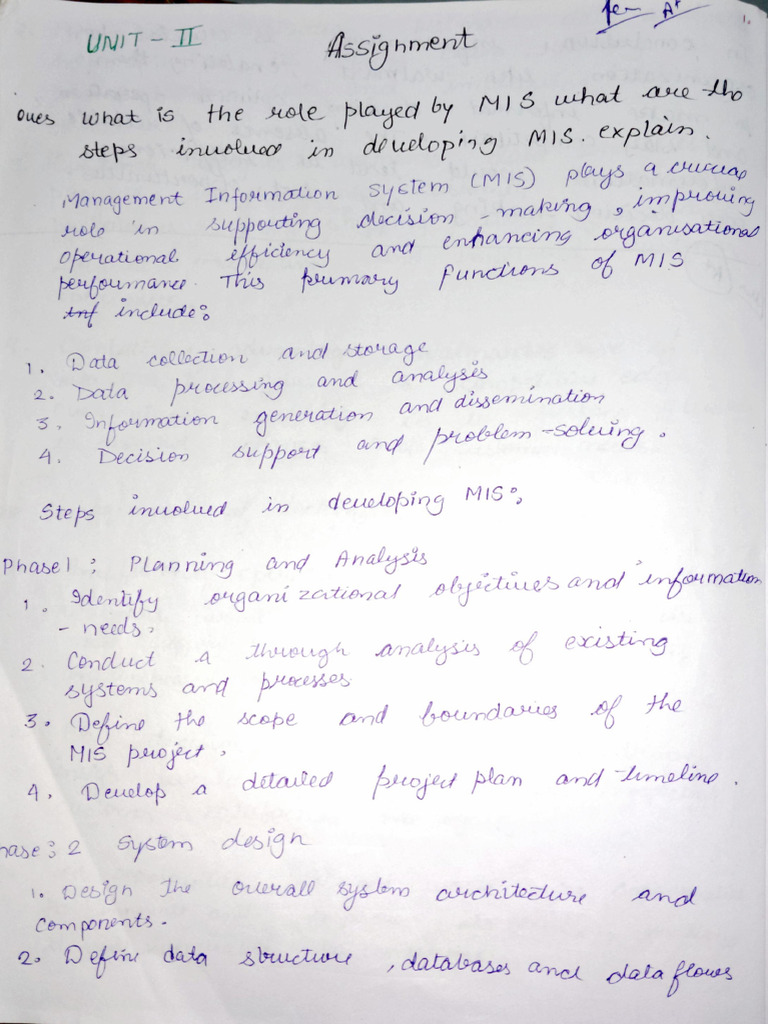 1.
A+
UNIT - II
Assignment
Ques what is the role played by MIS what are the
steps involved in developing MIS. explain.
Management Information System (MIS) plays a crucial
role in supporting decision-making, improving
operational efficiency and enhancing organisational
performance. This primary functions of MIS
include:
1. Data collection and storage
2. Data processing and analysis
3. Information generation and dissemination
4. Decision support and problem-solving.
Steps involved in developing MIS:
Phase 1: Planning and Analysis
1. Identify organizational objectives and information
- needs.
2. Conduct a through analysis of existing
systems and processes
3. Define the scope and boundaries of the
MIS project.
4. Develop a detailed project plan and timeline.
hase: 2 System design
1. Design the overall system architecture and
components.
2. Define data structure, databases and data flows